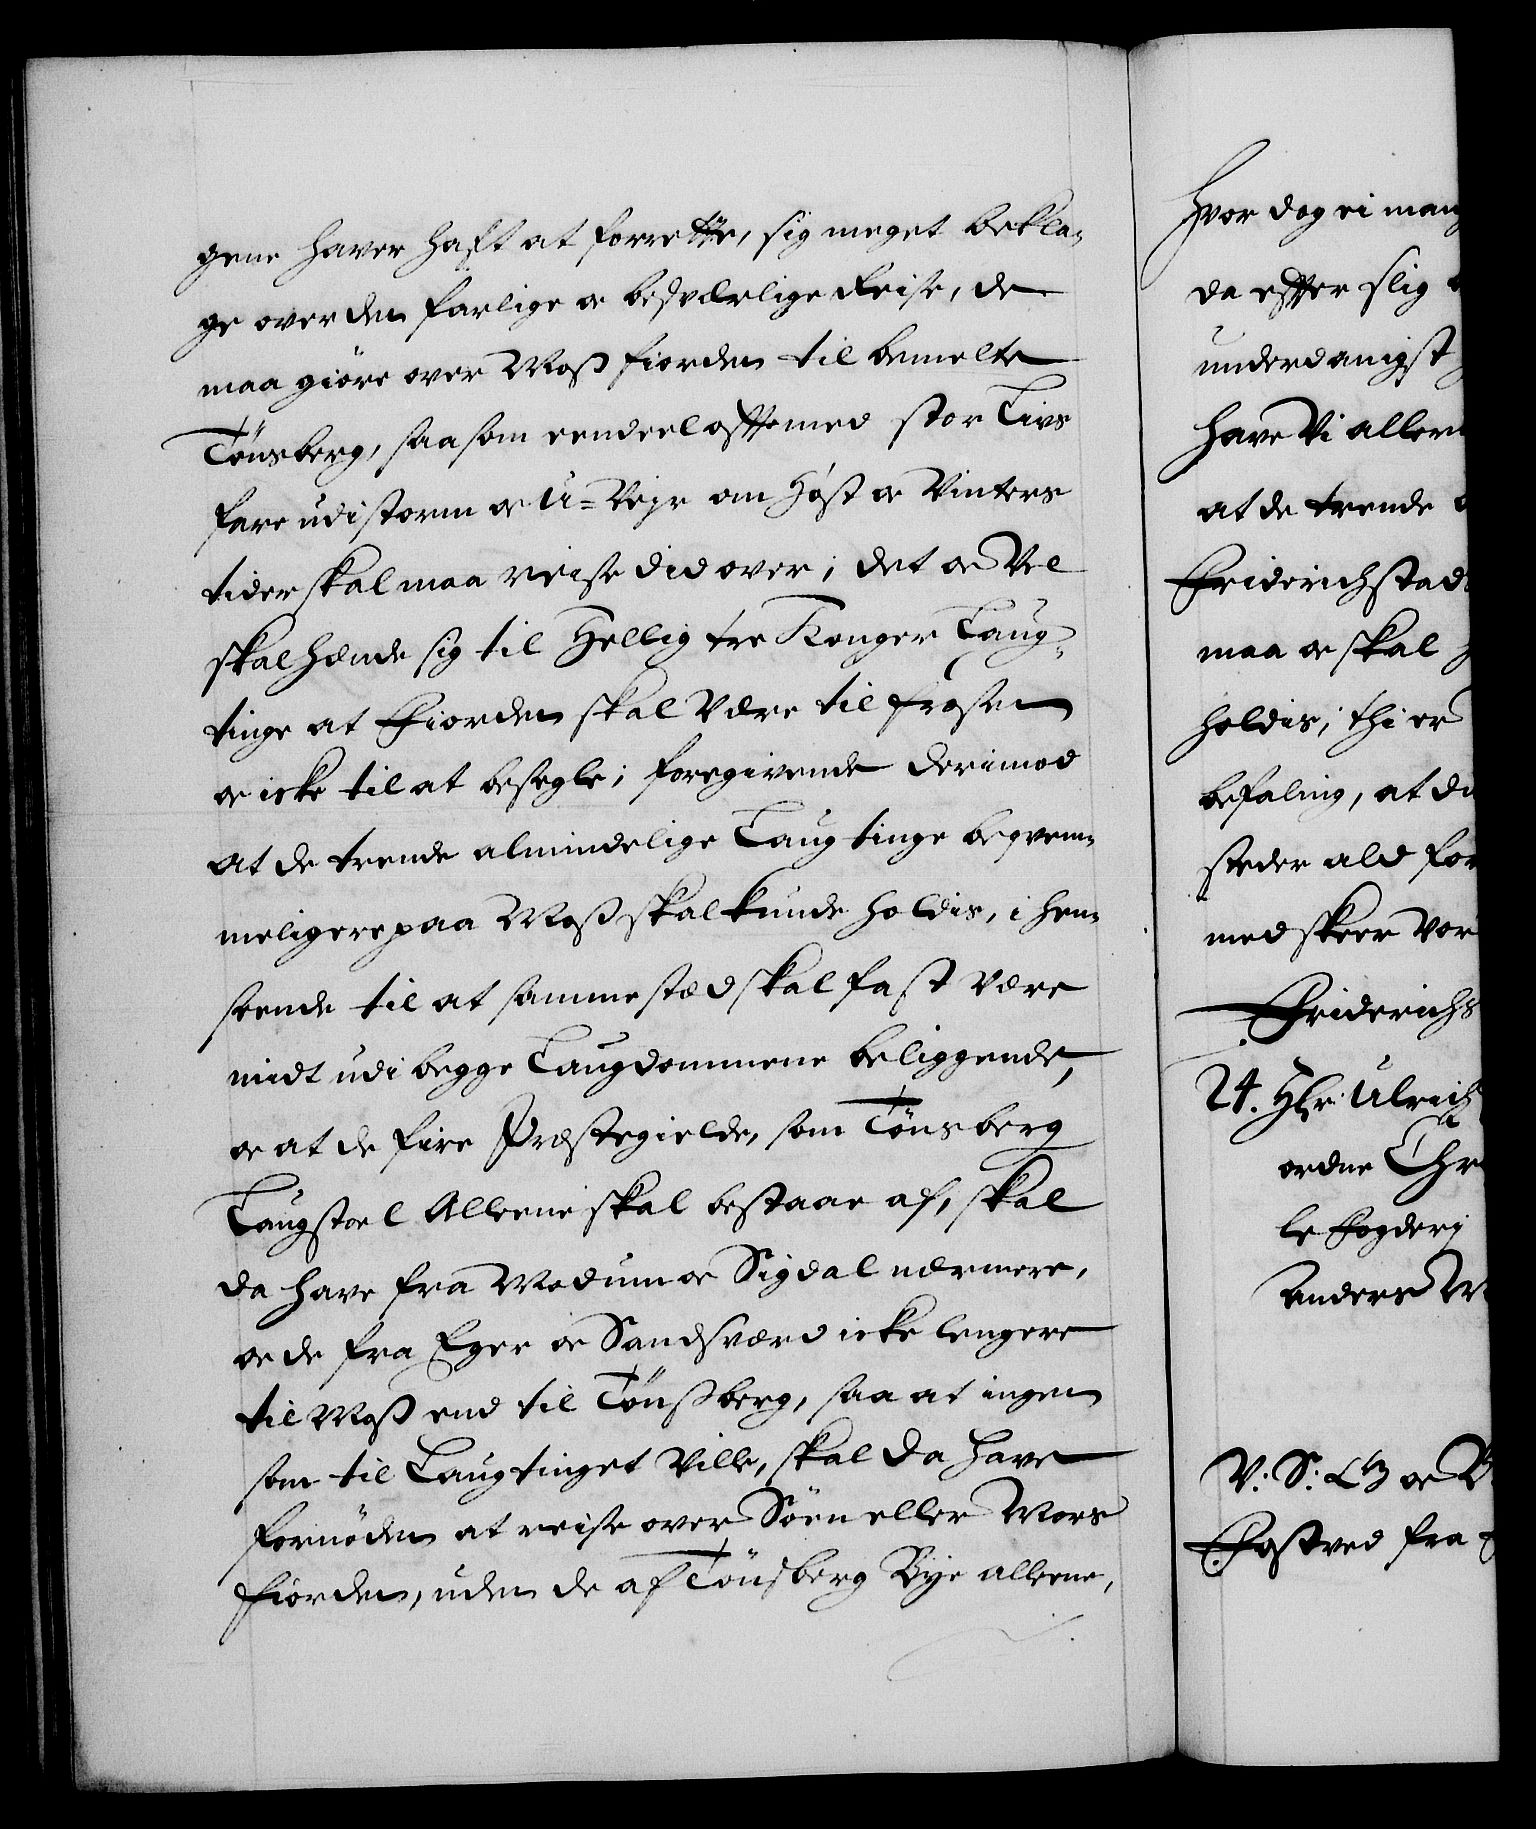 gene haver haft at forrette, sig meget bekla-
ge over den farlige oc besværlige Reise, de
maa giøre over Moss fiorden til bemelte
Tönsberg, saasom eendeel offte med stor Livs
fare udi storm oc U=Vejr om Høst oc Vinters
tider skal maa reise did over; det oc Vel
skal hænde sig til Hellig tre Konger Laug-
tinge at Fiorden skal være tilfrosen
oc icke til at besegle; foregivende derimod
at de trende almindelige Laugtinge beqvem-
meligere paa Moss skal kunde holdis, i hen-
seende til at sammestæd skal fast være
midt udi begge Laugdommene beliggende,
oc at de fire Præstegielde, som Tönsberg
Laugstoel Alleene skal bestaae af, skal
da have fra Modum oc Sigdal nærmere,
oc de fra Eger oc Sandsværd icke lengere
til Moss end til Tönsberg, saa at ingen
som til Laugtinget Ville, skal da have
fornöden at reise over Söen eller Mors
fiorden, uden de af Tönsberg Bye alleene,
Hvor dog ei man
da effter slig
underdanigst
have Vi aller
at de trende
Friderichstad
maa oc skal
holdis; thi er
befaling, at du
steder ald for
med skeer Vor
Friderichs
24. Hr. Ulrich
ordne Chr
le Fogderj
Anders
V: S: G oc
Fostved fra